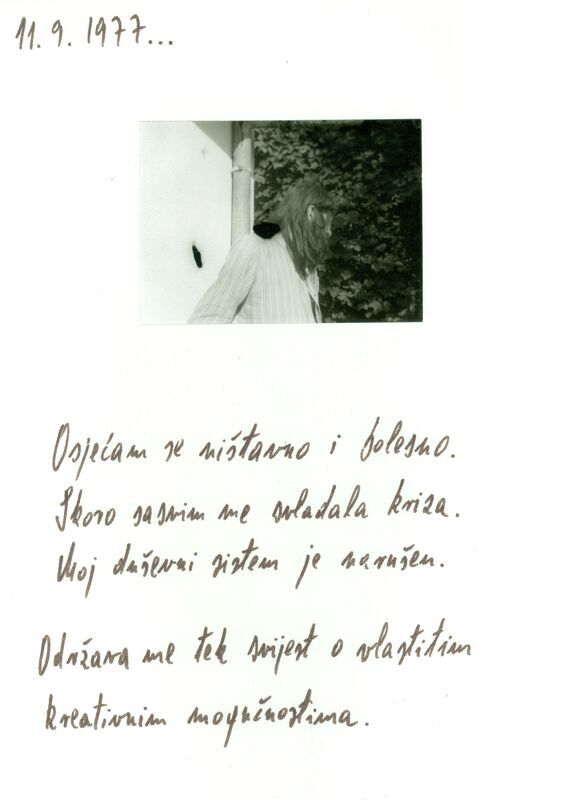 11. 9. 1977...
Osjećam se ništavno i bolesno.
Skoro sasvim me svladala kriza.
Moj duševni sistem je narušen.
Održava me tek svijest o vlastitim
kreativnim mogućnostima.